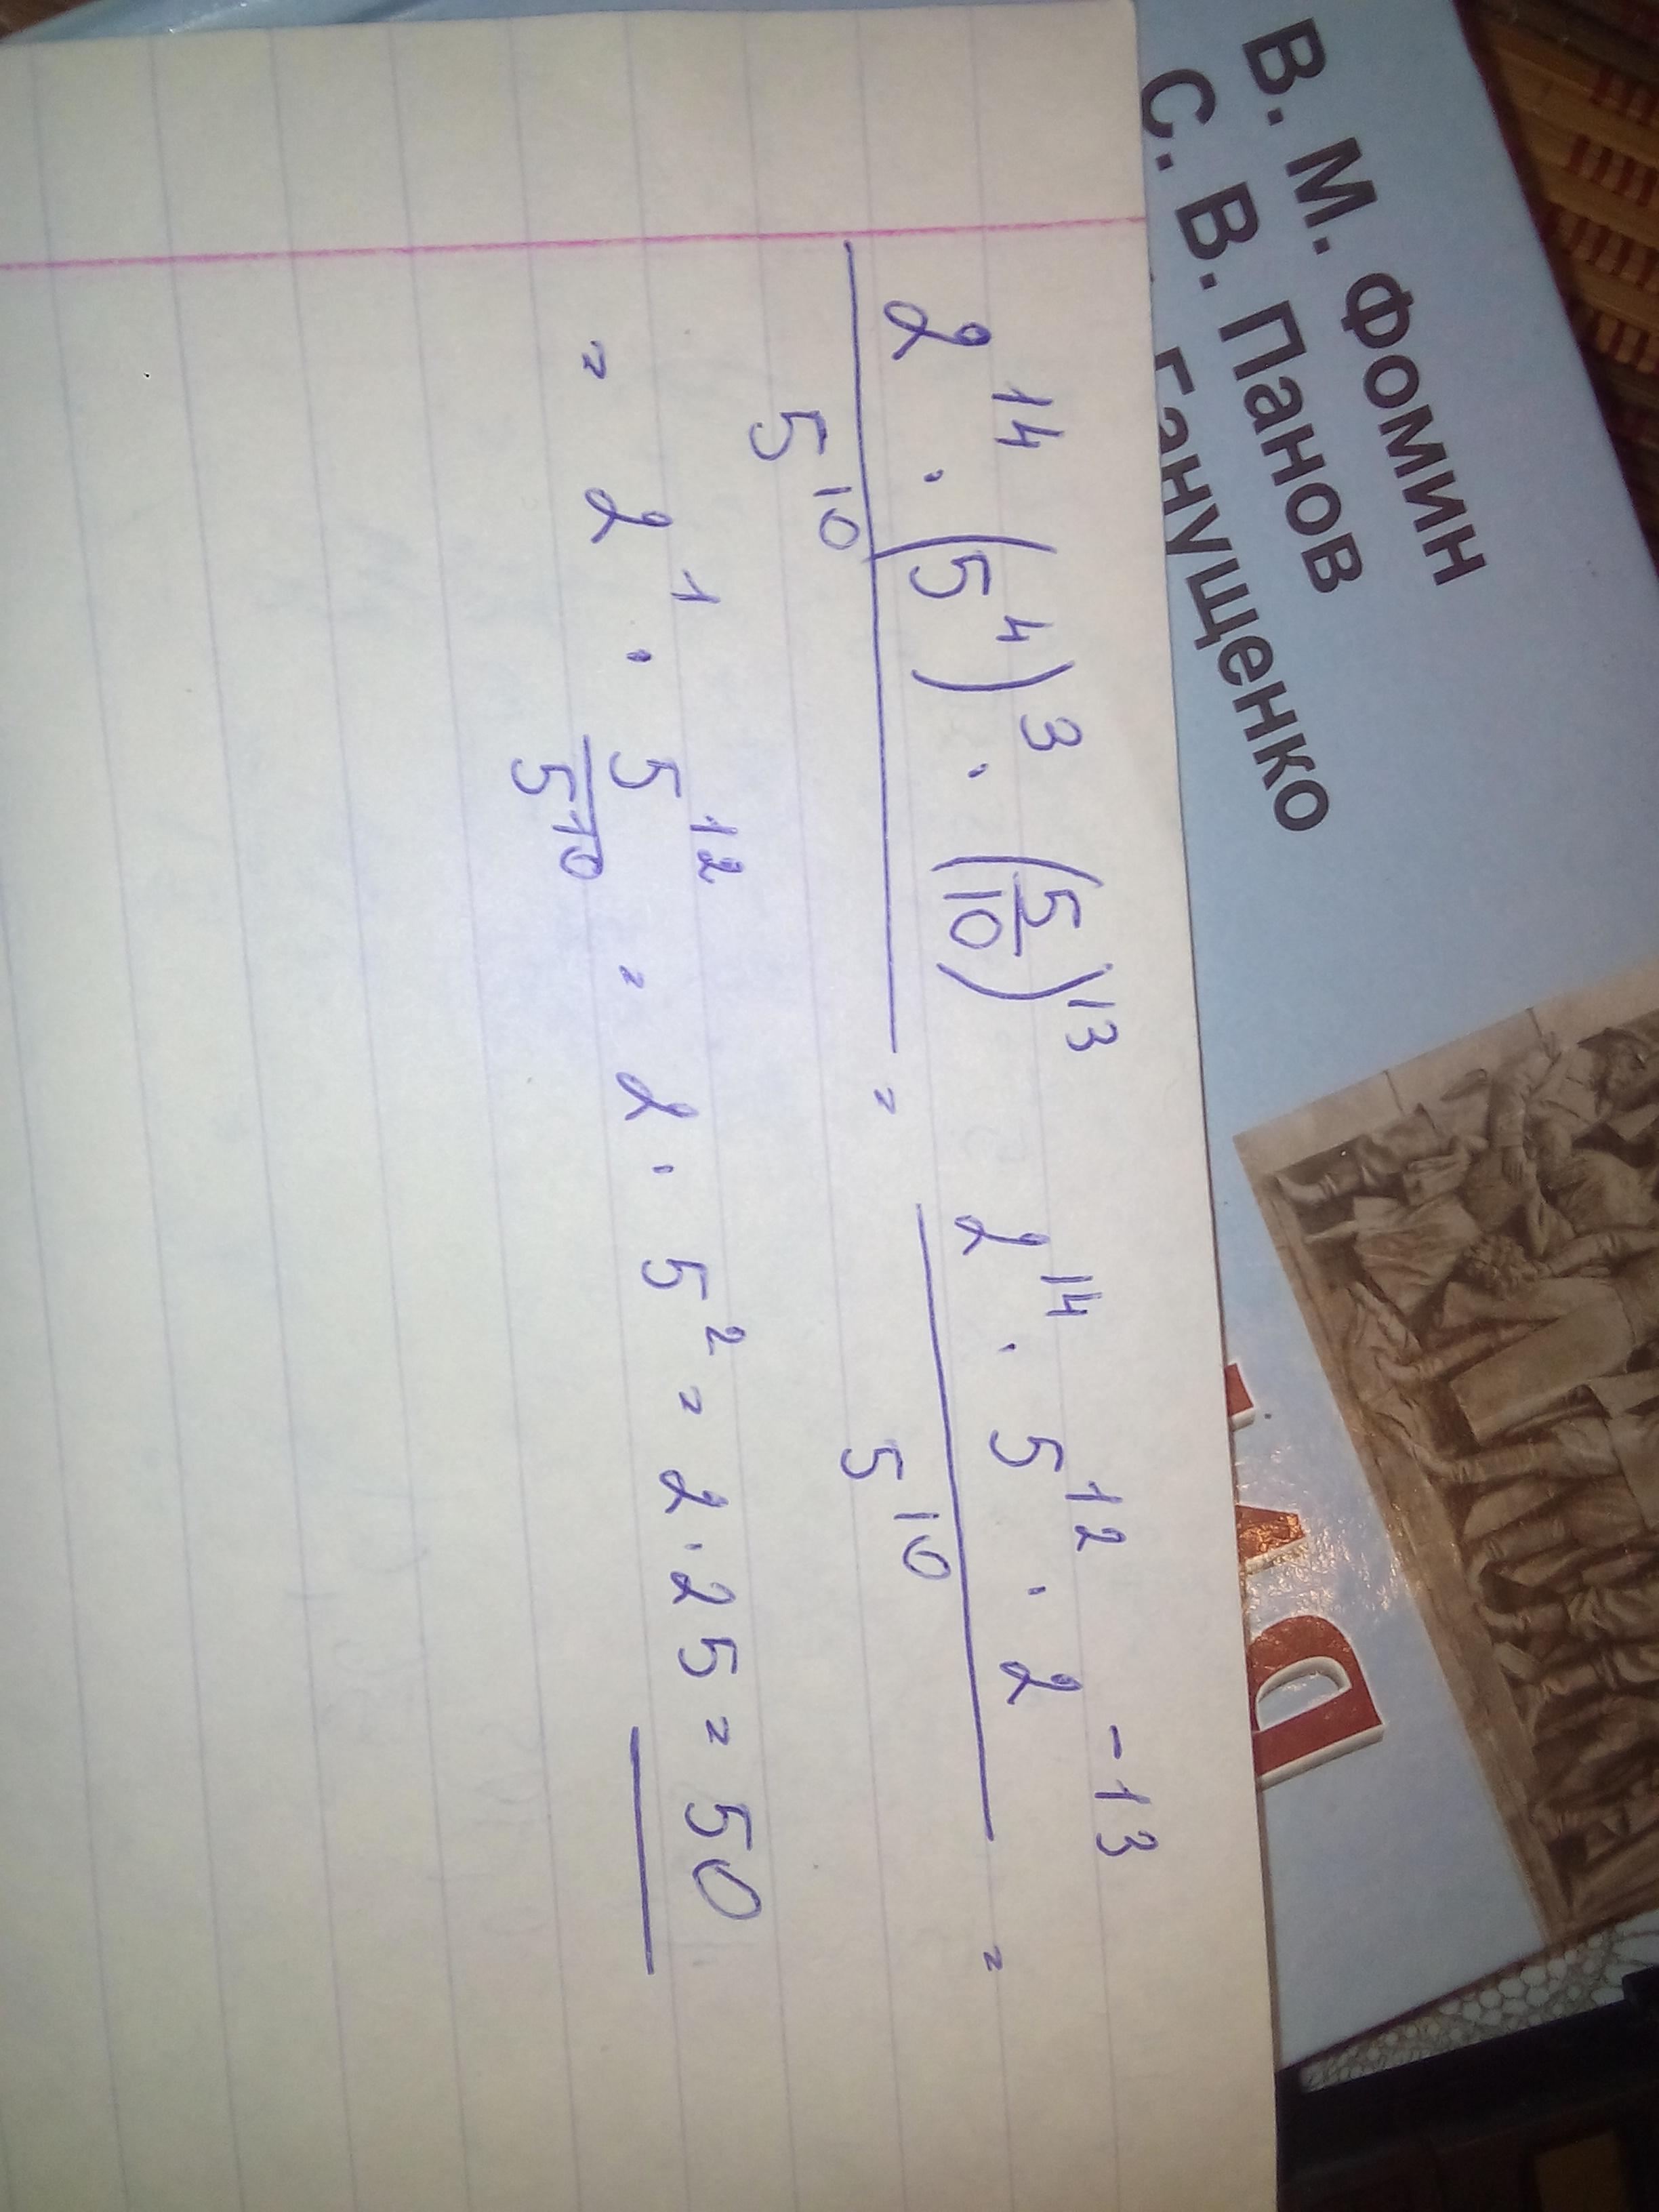 В. М. Фомин
С. В. Панов
Ганущенко
2^14 · (5^4)^3 · (5/10)^13 / 5^10 = 2^14 · 5^12 · 2^-13 / 5^10 =
= 2^1 · 5^12 / 5^10 = 2 · 5^2 = 2 · 25 = 50